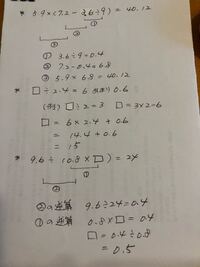 * 5.9×(7.2-3.6÷9) = 40.12
①
②
③
① 3.6÷9=0.4
② 7.2-0.4=6.8
③ 5.9×6.8=40.12
* □÷2.4=6 あまり 0.6
(例) □÷2=3 □=3×2=6
□ = 6×2.4+0.6
= 14.4+0.6
= 15
* 9.6÷(0.8×□)=24
①
②
②の逆算 9.6÷24=0.4
①の逆算 0.8×□=0.4
□=0.4÷0.8
= 0.5